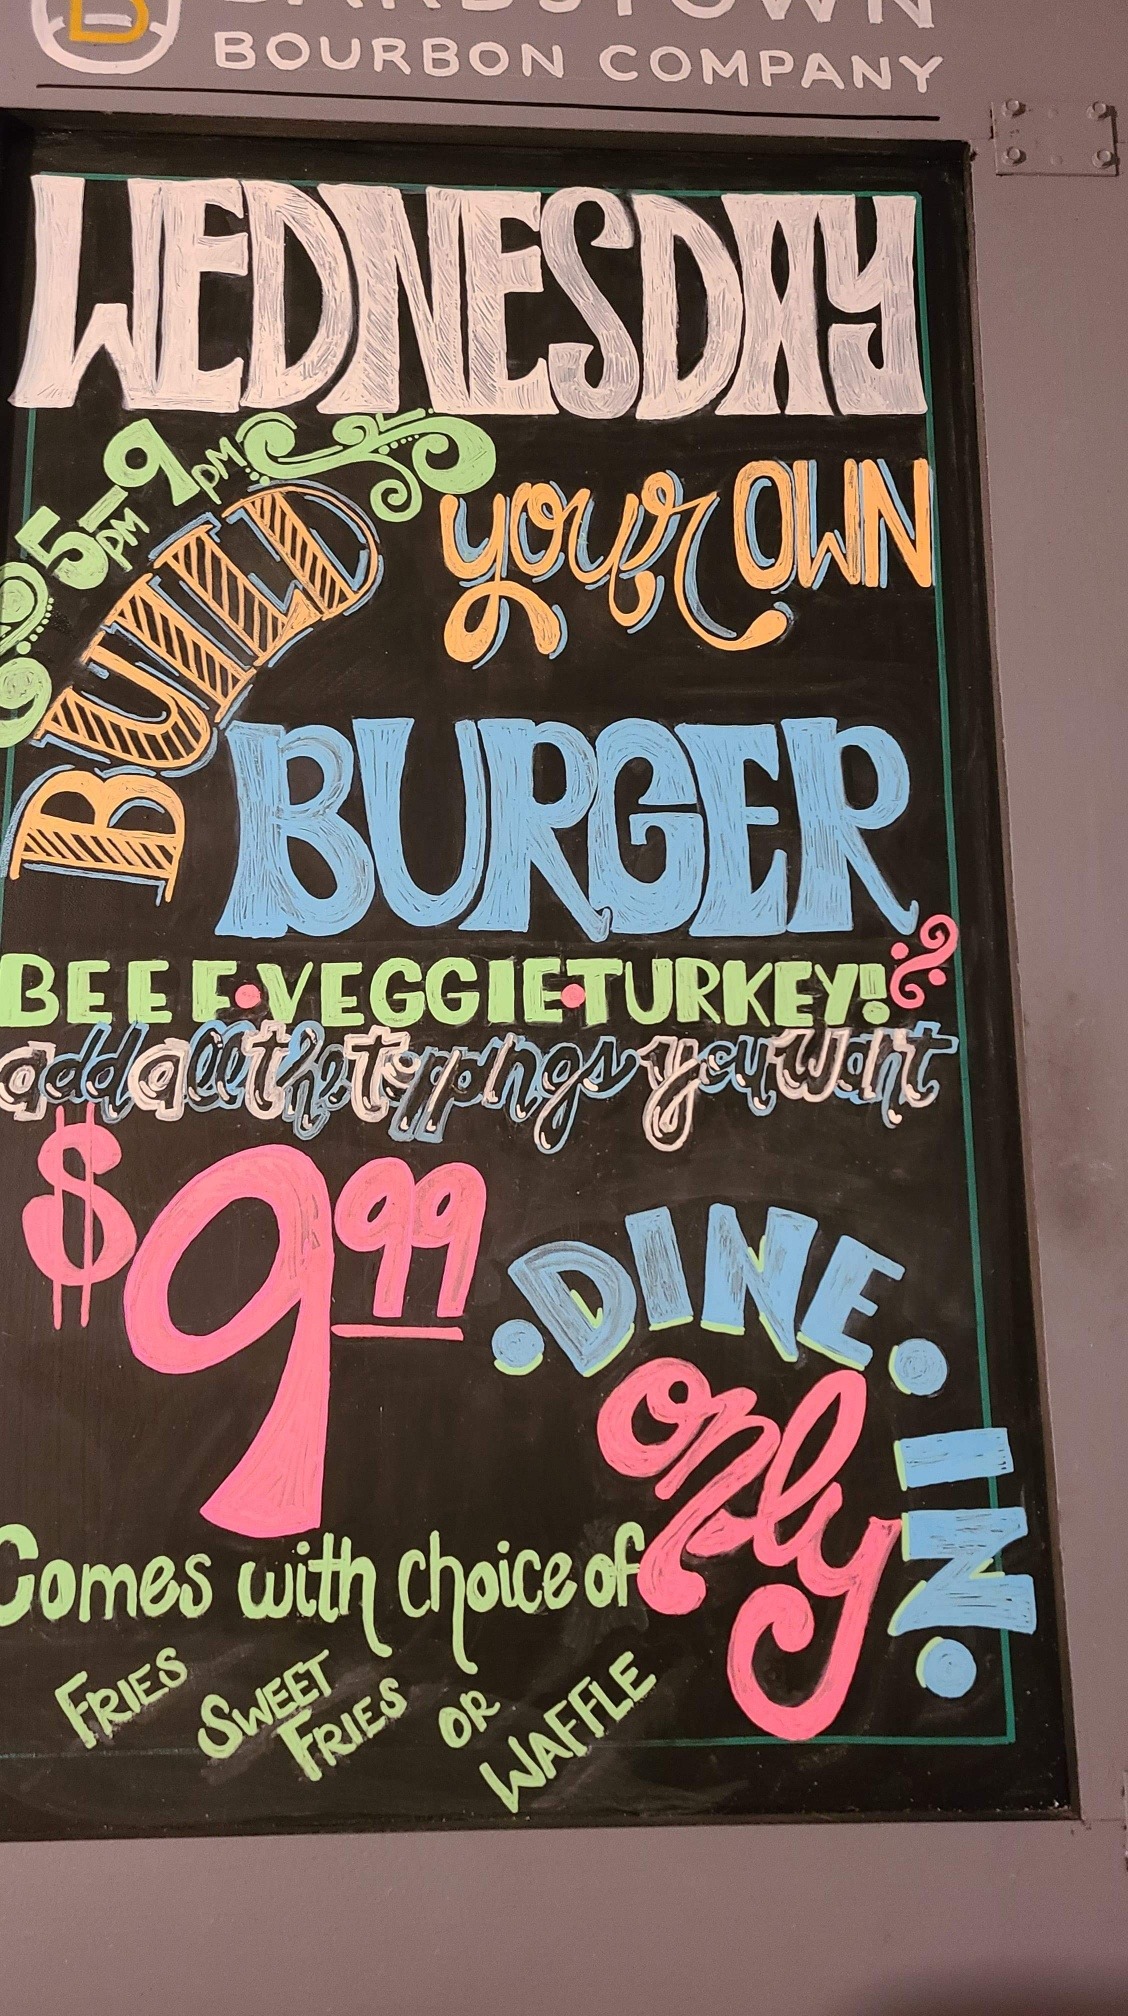 B
BARDSTOWN
BOURBON COMPANY
WEDNESDAY
5PM-9PM
BUILD your OWN
BURGER
BEEF•VEGGIE•TURKEY!
add all the toppings you want
$9.99
•DINE•IN•
only
Comes with choice of
FRIES
SWEET FRIES
OR
WAFFLE